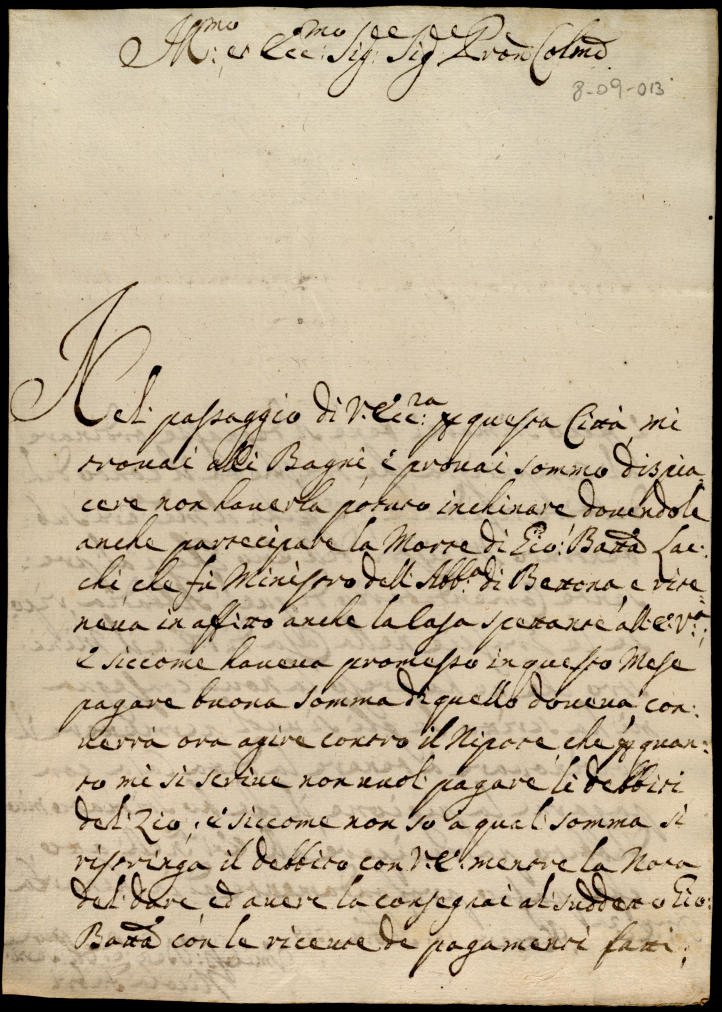 Ill:mo et Ecc:mo Sig:re Sig:re Pron Colmo
8-09-013
Nel passaggio di V: Ecc:za per questa Città, mi
trovai alli Bagni, e provai sommo dispia-
cere non haverla potuto inchinare dovendole
anche partecipare la Morte di Gio: Batta Lae-
chi che fù Ministro dell'Abb.a di Bettona, e rite-
neva in affitto anche la Casa spettante all'E:V:a;
e siccome haveva promesso in questo Mese
pagare buona somma di quello doveva, con-
verrà ora agire contro il Nipote, che per quan-
to mi si scrive non vuol pagare li debbiti
del Zio; e siccome non so a qual somma si
ristringa il debbito con V:E: mentre la Nota
del dare ed avere la consegnai al suddetto Gio:
Batta con le ricevute de pagamenti fatti,